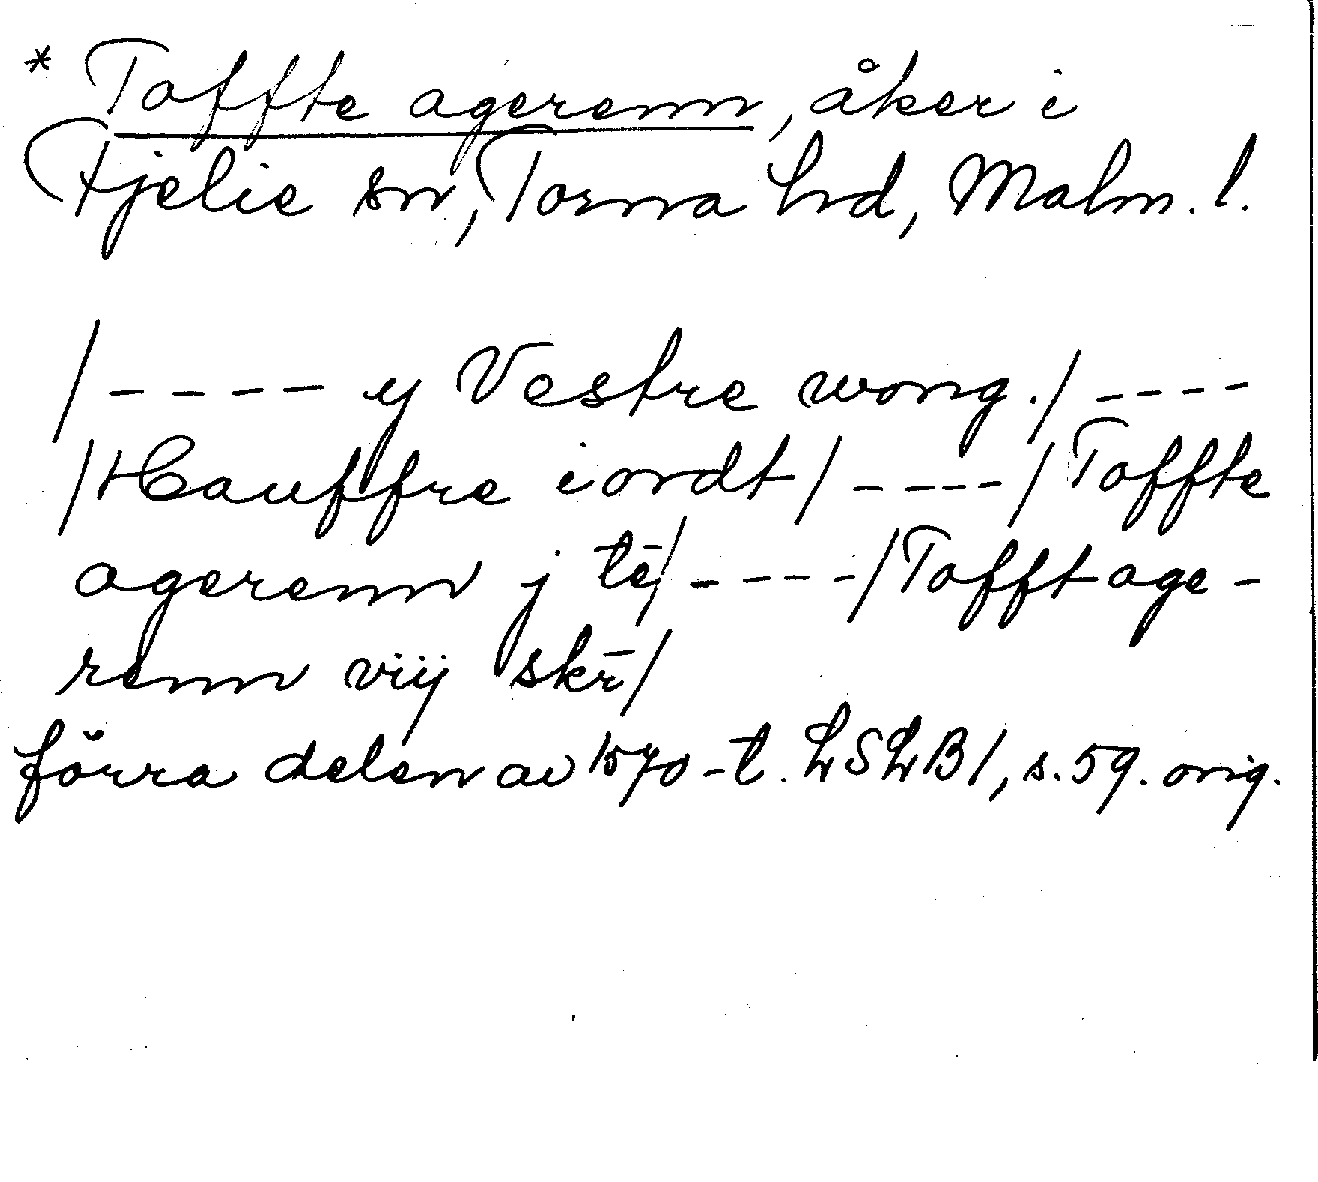 * Toffte agerenn, åker i
Fjelie sn, Torna hd, Malm. l.
/---- y Vestre wong./----
/Hauffre iordt/----/Toffte
agerenn j tē/----/Tofftage-
renn vij skr̄/
förra delen av 1570-t. LSLB1, s.59. orig.